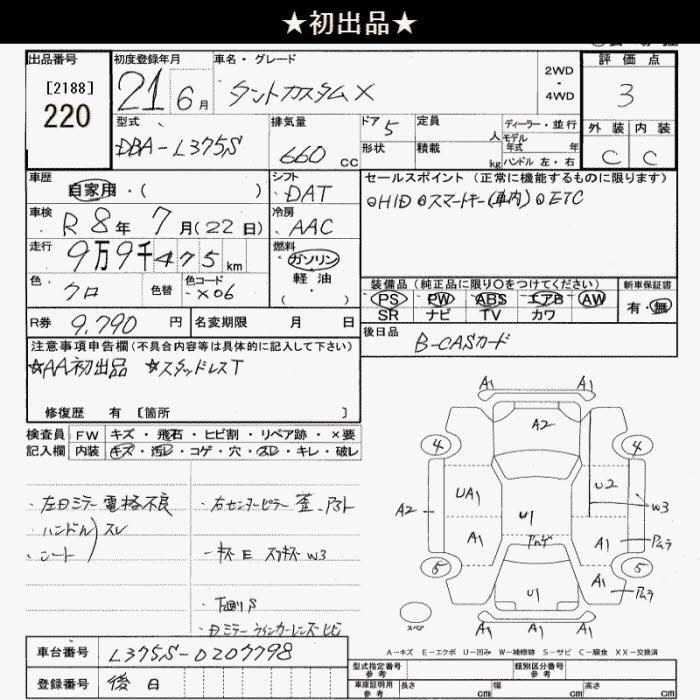 ★初出品★
出品番号 初度登録年月 車名・グレード 2WD・4WD 評価点
[2188] 220 21 6月 タントカスタムX 3
型式 排気量 ドア 5 定員 人 ディーラー・並行 外装 内装
DBA-L375S 660cc 形状 積載 kg モデル年式 年 ハンドル 左・右 C C
車歴 シフト セールスポイント (正常に機能するものに限ります)
自家用・( ) DAT ◎HID ◎スマートキー(車内) ◎ETC
車検 R8年7月(22日) 冷房 AAC
走行 9万9千475km 燃料 ガソリン
軽油
装備品(純正品に限り○をつけてください) 新車保証書
色 クロ 色替 色コード X06 ・( )
PS PW ABS エアB AW 有・無
SR ナビ TV カワ
R券 9,790円 名変期限 月 日
後日品 B-CASカード
注意事項申告欄(不具合内容等は具体的に記入して下さい)
☆AA初出品 ☆スタッドレスT
修復歴 有 [箇所 ]
検査員 FW キズ・飛石・ヒビ割・リペア跡・×要
記入欄 内装 キズ・汚レ・コゲ・穴・スレ・キレ・破レ
・左日ミラー電格不良
・ハンドル スレ
・シート
・右センターピラー 歪
・下廻りS
・日ミラーウインカーレンズヒビ
A1 A1
A2
4 4
UA1 U2
A2 U1 W3
A1 A1
5 5
A1
U1
A1 A1 A1
スペア
A-キズ E-エクボ U-凹み W-補修跡 S-サビ C-腐食 XX-交換済
車台番号 L375S-0207798
登録番号 後日
型式指定番号 参考 類別区分番号 参考
車庫証明用 参考 長さ cm 幅 cm 高さ cm